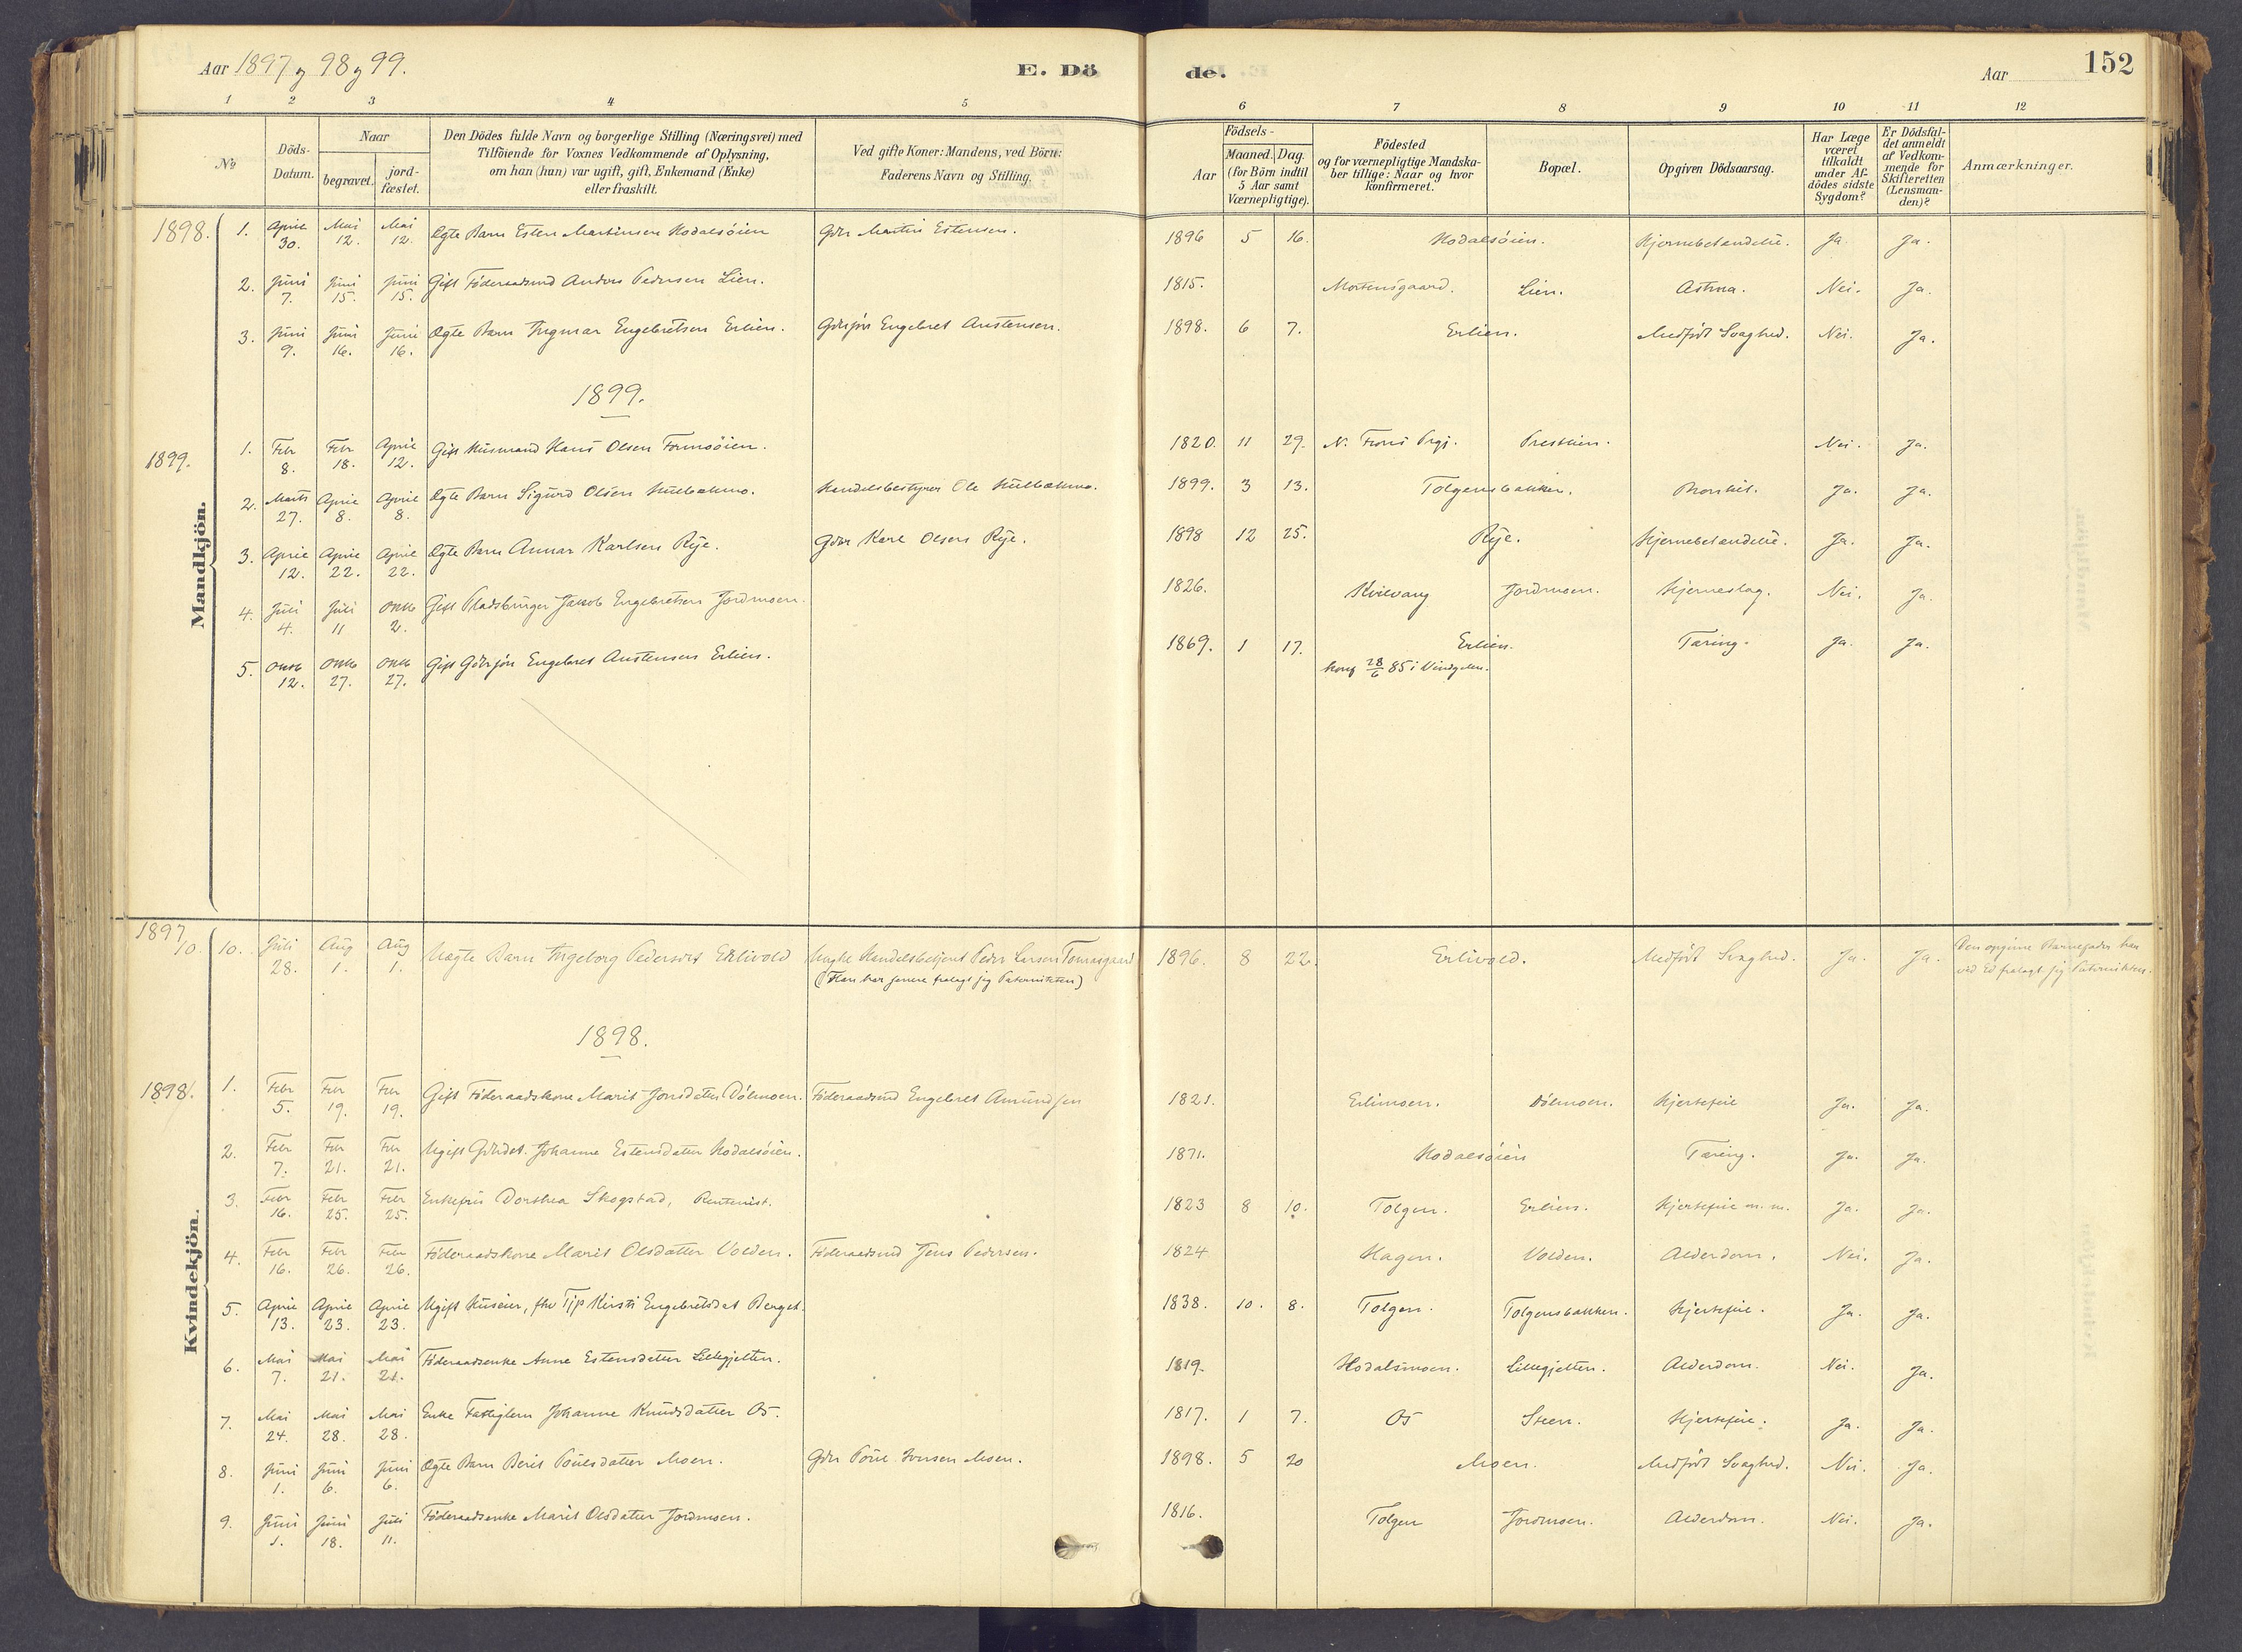 Aar 1897 og 98 og 99.
E. Döde.
Aar
152
1 2 3 4 5 6 7 8 9 10 11 12
No
Döds-Datum.
Naar
begravet.
jord-fæstet.
Den Dödes fulde Navn og borgerlige Stilling (Næringsvei) med
Tilföiende for Voxnes Vedkommende af Oplysning,
om han (hun) var ugift, gift, Enkemand (Enke)
eller fraskilt.
Ved gifte Koner: Mandens, ved Börn:
Faderens Navn og Stilling.
Aar
Födsels-
Maaned. Dag.
(for Börn indtil
5 Aar samt
Værnepligtige).
Födested
og for værnepligtige Mandska-
ber tillige: Naar og hvor
konfirmeret.
Bopæl.
Opgiven Dödsaarsag.
Har Læge
været
tilkaldt
under Af-
dödes sidste
Sygdom?
Er Dödsfal-
det anmeldt
af Vedkom-
mende for
Skifteretten
(Lensman-
den)?
Anmærkninger.
Mandkjön.
1898. 1. April 30. Mai 12. Mai 12. Ægte Barn Esten Martinsen Hodalsöien Gdbr Martin Estensen. 1896 5 16. Hodalsöien. Hjernebetændelse. Ja. Ja.
2. Juni 7. Juni 15. Juni 15. Gift Föderaadsmd Anders Pedersen Lien. 1815. Mortensgaard. Lien. Astma. Nei. Ja.
3. Juni 9. Juni 16. Juni 16. Ægte Barn Ingmar Engebretsen Erlien. Engebret Austensen. 1898. 6 7. Erlien. Medfödt Svaghed. Nei. Ja.
1899.
1899. 1. Febr 8. Febr 18. April 12. Gift Husmand Hans Olsen Formoöien. 1820. 11 29. N. Frons Prgj. Prestlien. Nei. Ja.
2. Marts 27. April 8. April 8. Ægte Barn Sigurd Olsen Hulbækmo. Handelsbestyrer Ole Hulbækmo. 1899. 3 13. Tolgensbakken. Bronkit. Ja. Ja.
3. April 12. April 22. April 22. Ægte Barn Annar Karlsen Rye. Gdbr Karl Olsen Rye. 1898 12 25. Rye. Hjernebetændelse. Ja. Ja.
4. Juli 4. Juli 11 Oktb 2. Gift Pladsbruger Jakob Engebretsen Jordmoen. 1826. Kvilvang Jordmoen. Hjerneslag. Nei. Ja.
5. Oktb 12. Oktb 27. Oktb 27. Gift Engebret Austensen Erlien. 1869. 1 17. Erlien. Tæring. Ja. Ja.
konf 28/6 85 i Vingelen.
Kvindekjön.
1897 10. 10. Juli 28. Aug 1. Aug 1. Uægte Barn Ingeborg Pedersdt Erlivold Ungkl Handelsbetjent Peder Larsen Tomasgaard 1896. 8 22. Erlivold. Medfödt Svaghed. Ja. Ja. Den opgivne Barnefader har
(Han har senere fralagt sig Paterniteten) ved Ed fralagt sig Paterniteten.
1898.
1898. 1. Febr 5. Febr 19. Febr 19. Gift Föderaadskone Marit Jonsdatter Dölmoen. Föderaadsmd Engebret Amundsen 1821. Erlimoen. Dölmoen. Hjertefeil Ja. Ja.
2. Febr 7. Febr 21. Febr 21. Ugift Johanne Estensdatter Hodalsöien. 1871. Hodalsöien Tæring. Ja. Ja.
3. Febr 16. Febr 25. Febr 25. Enkefru Dorthea Skogstad, Rentenist. 1823 8 10. Tolgen. Erlien. Hjertefeil m. m. Ja. Ja.
4. Febr 16. Febr 26. Febr 26. Föderaadskone Marit Olsdatter Volden. Föderaadsmd Jens Pedersen. 1824 Hagen. Volden. Alderdom. Nei. Ja.
5. April 13. April 23. April 23. Ugift Huseier, fhv Tjp Kirsti Engebretsdat Berget. 1838. 10. 8. Tolgen. Tolgensbakken. Hjertefeil. Ja. Ja.
6. Mai 7. Mai 21. Mai 21. Föderaadsenke Anne Estensdatter Lillegjelten. 1819. Hodalsmoen. Lillegjelten. Alderdom. Nei. Ja.
7. Mai 24. Mai 28. Mai 28. Enke Fattiglem Johanne Knudsdatter Os. 1817. 1 7. Os Steen. Hjertefeil. Ja. Ja.
8. Juni 1. Juni 6. Juni 6. Ægte Barn Berit Poulsdatter Moen. Gdbr Poul Iversen Moen. 1898. 5 20 Moen. Medfödt Svaghed. Nei. Ja.
9. Juni 1. Juni 18. Juli 11. Föderaadsenke Marit Olsdatter Jordmoen. 1816. Tolgen Jordmoen. Alderdom. Nei. Ja.